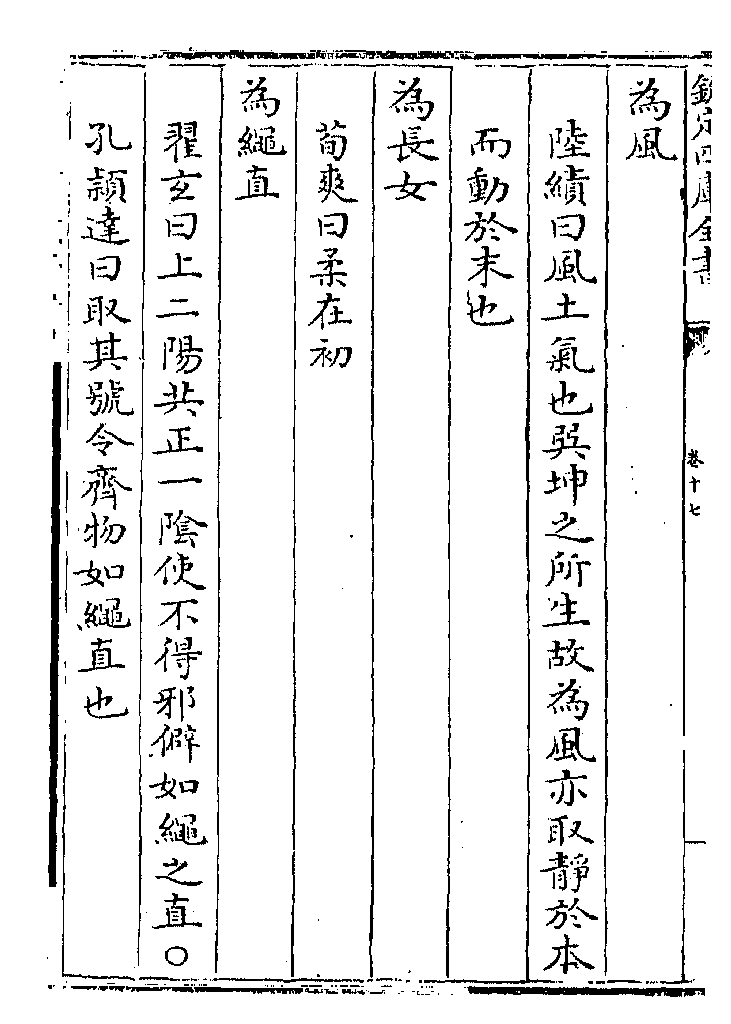 欽定四庫全書
卷十七
為風
陸績曰風土氣也巽坤之所生故為風亦取靜於本
而動於末也
為長女
荀爽曰柔在初
為繩直
翟玄曰上二陽共正一陰使不得邪僻如繩之直○
孔穎達曰取其號令齊物如繩直也